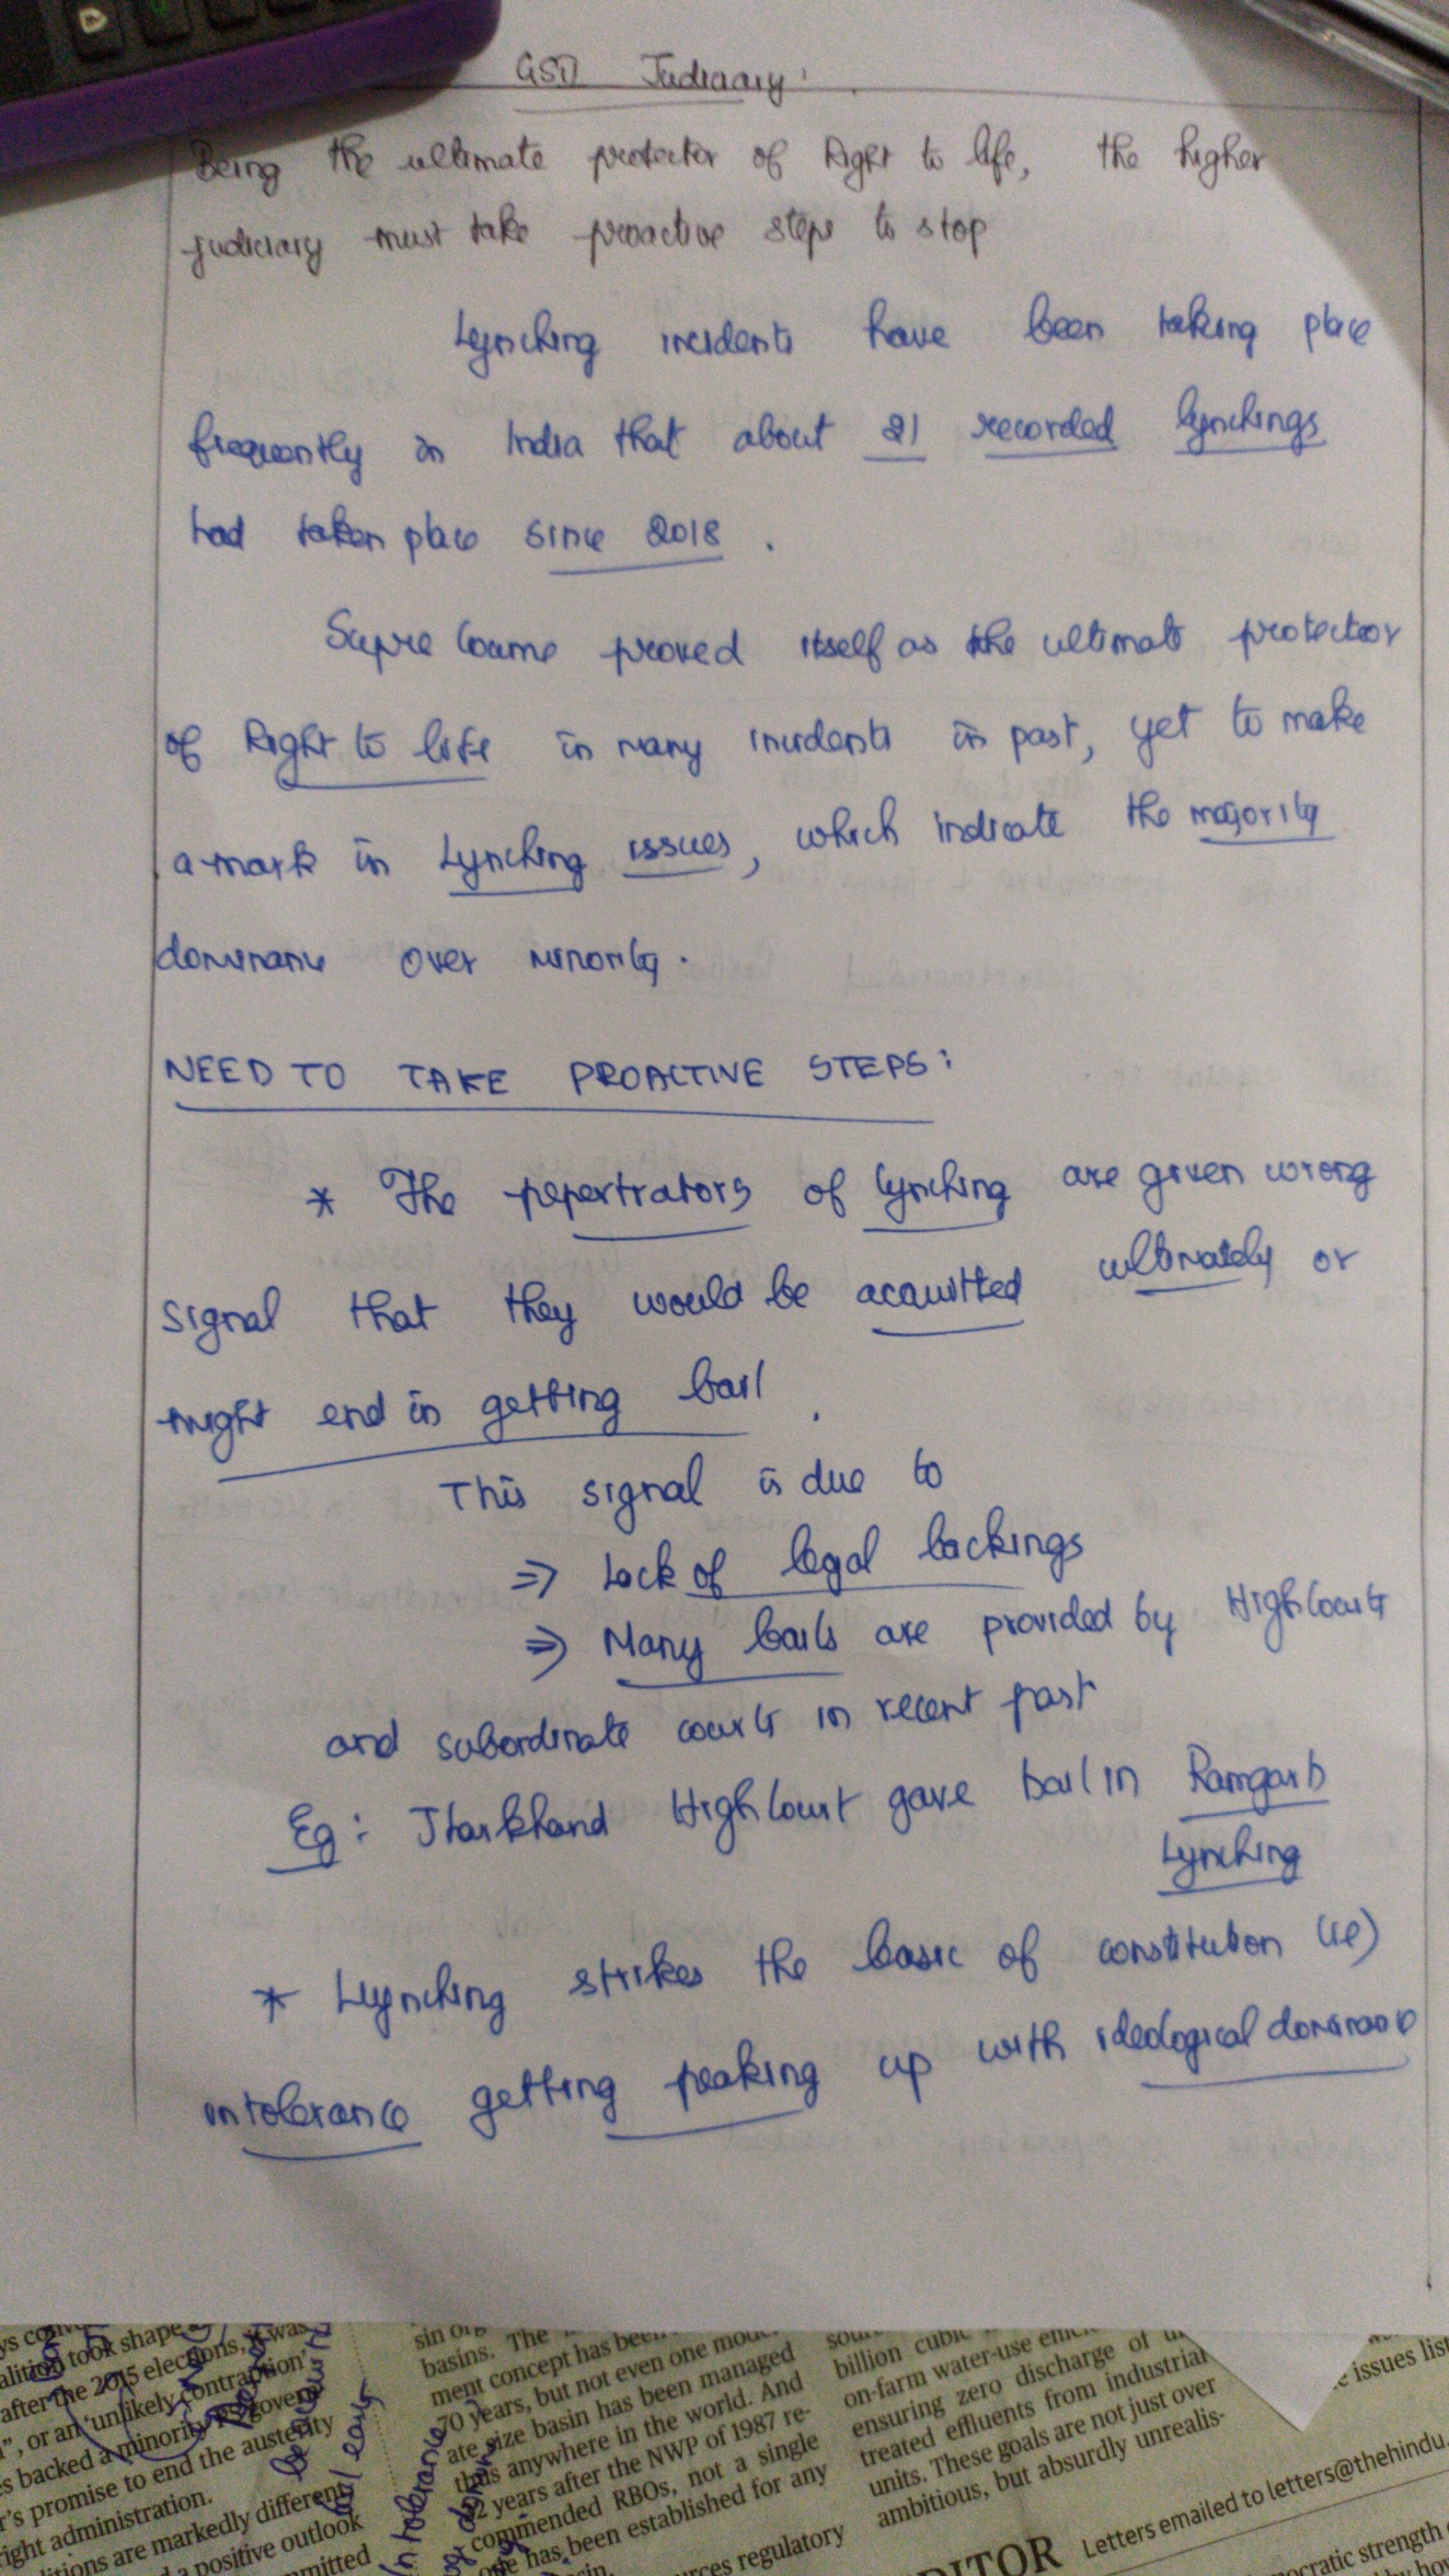 GSII Judiciary
Being the ultimate protector of Right to life, the higher
judiciary must take proactive steps to stop
Lynching incidents have been taking place
frequently in India that about 21 recorded lynchings
had taken place since 2018.
Supre Courme proved itself as the ultimate protector
of Right to life in many incidents in past, yet to make
a mark in Lynching issues, which indicate the majority
dominance over minority.
NEED TO TAKE PROACTIVE STEPS:
* The pepertrators of lynching are given wrong
signal that they would be acquitted ultimately or
might end in getting bail.
This signal is due to
⇒ Lack of legal backings
⇒ Many bails are provided by High Courts
and subordinate courts in recent past
Eg: Jharkhand High Court gave bail in Ramgarh
Lynching
* Lynching strikes the basic of constitution (ie)
intolerance getting peaking up with ideological dominance
alition took shape
after the 2015 elections, it was
", or an 'unlikely contraption'
s backed a minority PS govern
r's promise to end the austerity
ight administration.
itions are markedly different
a positive outlook
mmitted
basins. The
ment concept has been
70 years, but not even one mode
ate size basin has been managed
thus anywhere in the world. And
32 years after the NWP of 1987 re-
commended RBOs, not a single
one has been established for any
billion cubic
on-farm water-use
ensuring zero discharge of
treated effluents from industrial
units. These goals are not just over
ambitious, but absurdly unrealis-
rces regulatory
DITOR
Letters emailed to letters@thehindu.
issues lis
ocratic strength